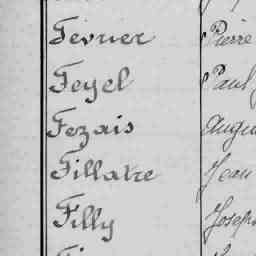 Fevrier Pierre
Feyel Paul
Fezais Augu
Fillatre Jean
Filly Joseph